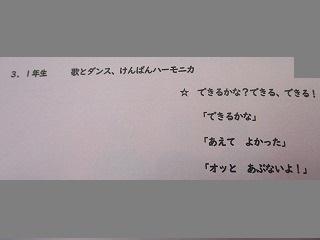 3. 1年生　歌とダンス、けんばんハーモニカ
☆ できるかな？できる、できる！
「できるかな」
「あえて　よかった」
「オッと　あぶないよ！」